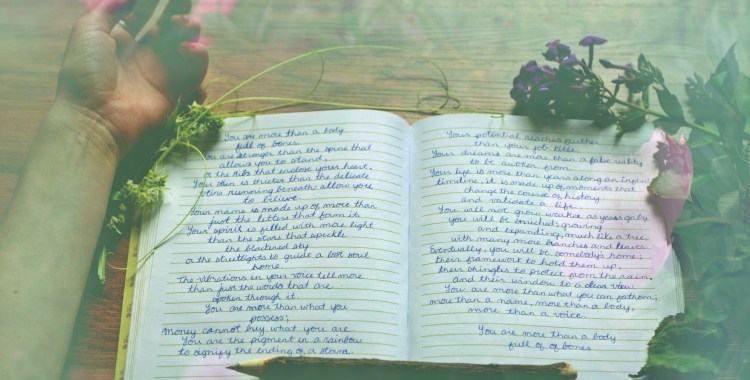 You are more than a body
full of bones.
You are stronger than the spine that
allows you to stand,
or the ribs that enclose your heart.
Your skin is thicker than the delicate
veins running beneath allow you
to believe.
Your name is made up of more than
just the letters that form it.
Your spirit is filled with more light
than the stars that speckle
the blackened sky
or the streetlights to guide a lost soul
home.
The vibrations in your voice tell more
than just the words that are
spoken through it.
You are more than what you
possess;
Money cannot buy what you are
You are the pigment in a rainbow
to signify the ending of a storm.
Your potential reaches further
than your job title.
Your dreams are more than a fable
to be awoken from.
Your life is more than years along an
timeline; it is made up of moments that
change the course of history
and validate a life.
You will not grow weaker as years go by
you will be enriched; growing
and expanding, much like a tree,
with many more branches and leaves.
Eventually, you will be somebody's home;
their framework to hold them up,
their shingles to protect from the rain,
and their window to a clear view
You are more than what you can fathom;
more than a name, more than a body,
more than a voice.
You are more than a body
full of of bones